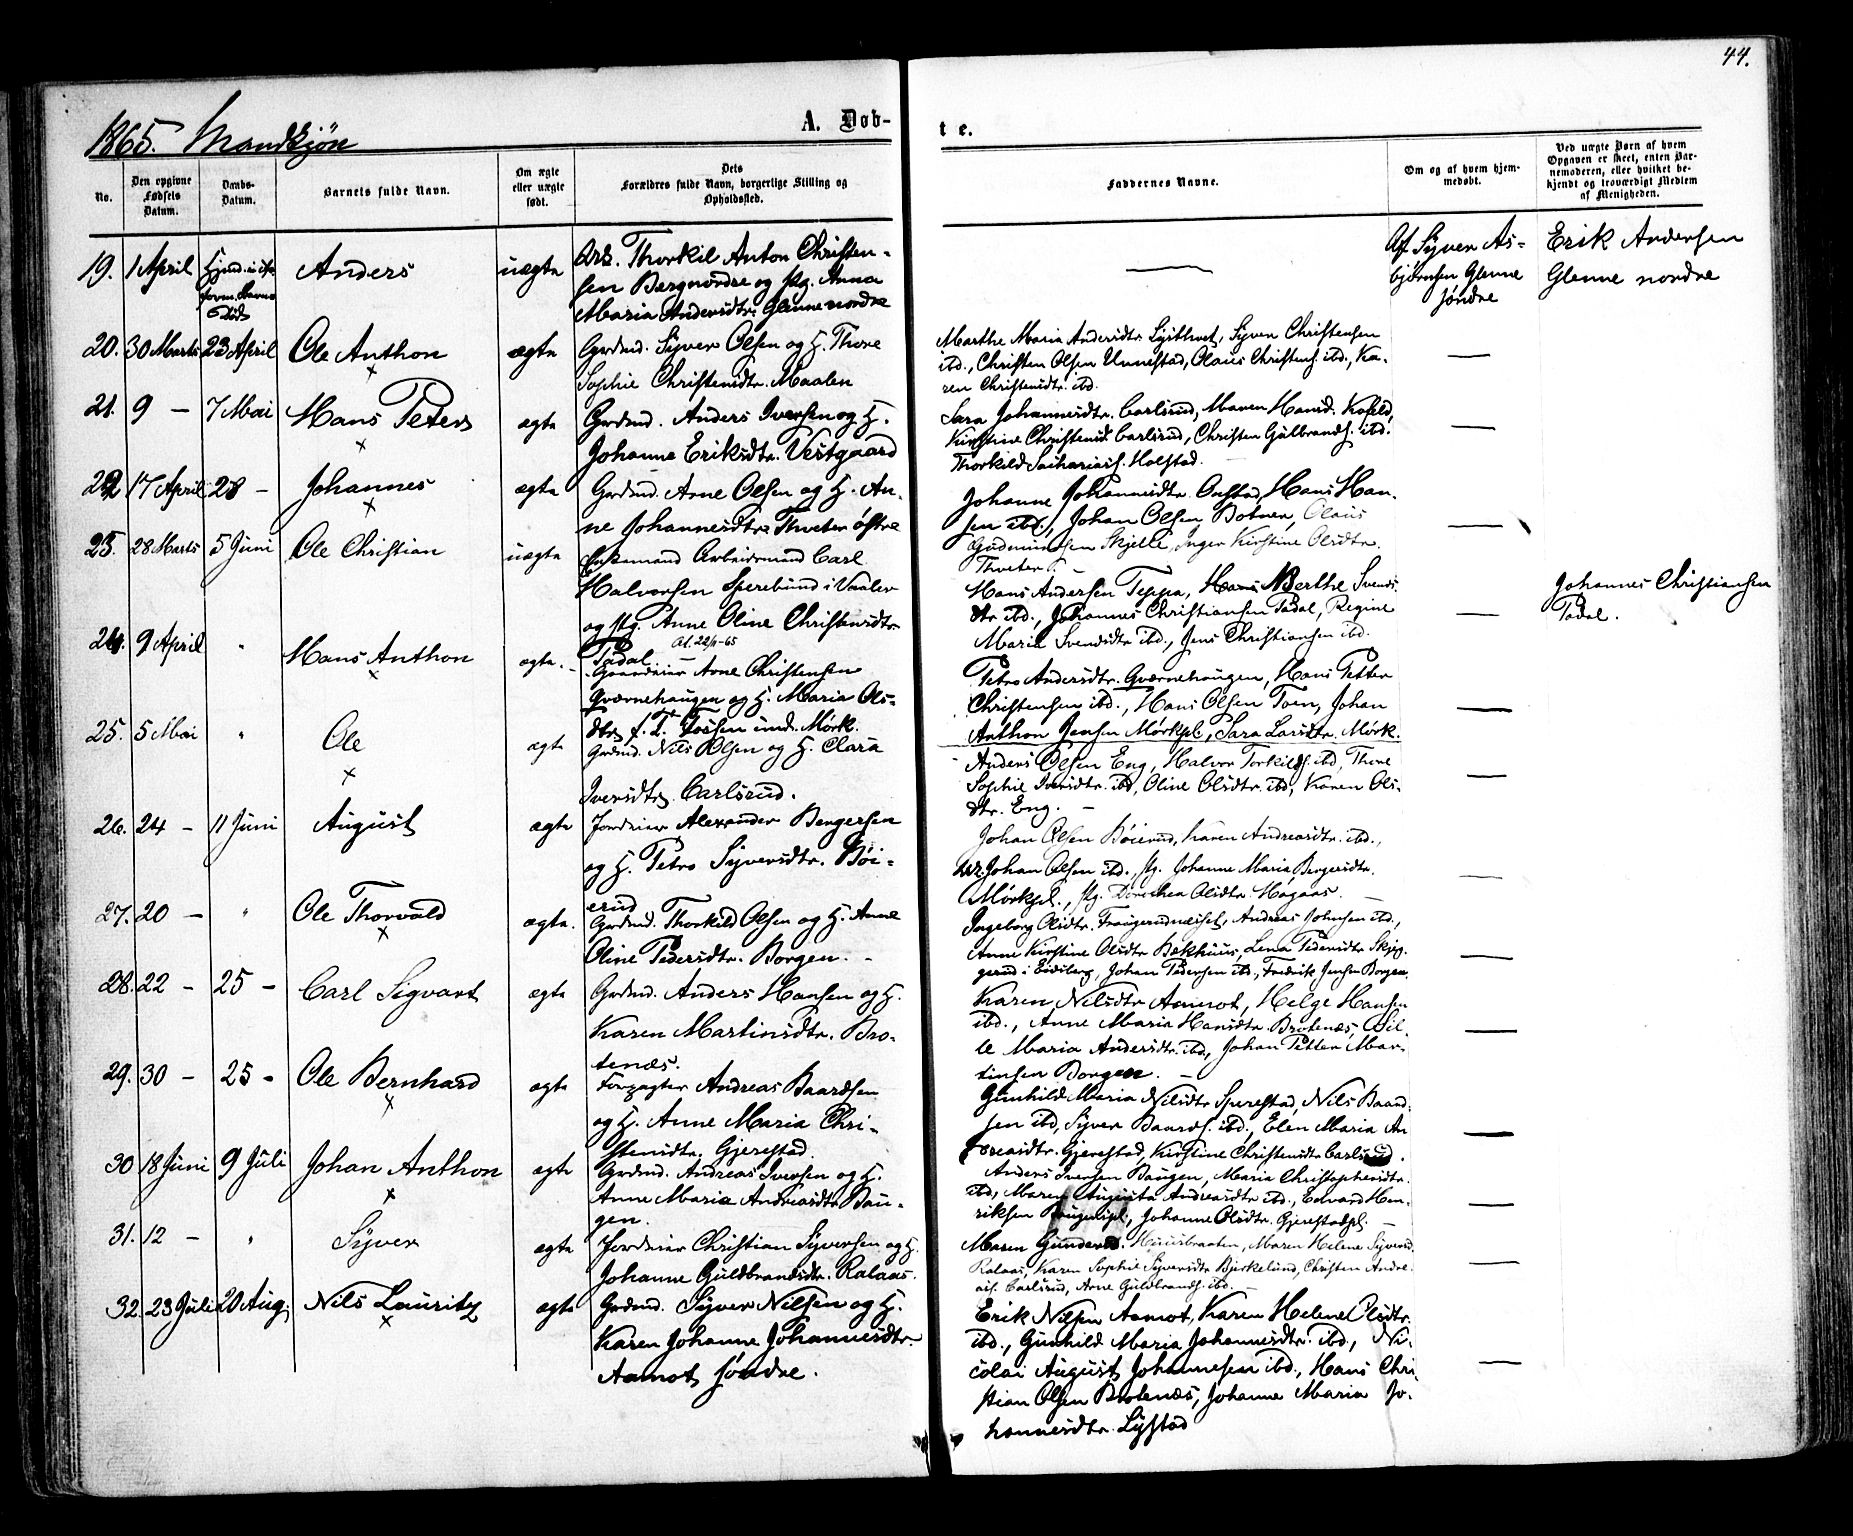 44.
1865. Mandkjøn
A. Døb-
t e.
No.
Den opgivne Fødsels Datum.
Daabs-Datum.
Barnets fulde Navn.
Om ægte eller uægte født.
Dets Forældres fulde Navn, borgerlige Stilling og Opholdssted.
Faddernes Navne.
Om og af hvem hjem-medøbt.
Ved uægte Børn af hvem Opgaven er skeet, enten Bar-nemoderen, eller hvilket be-kjendt og troværdigt Medlem af Menigheden.
19. 1 April Anders uægte
Arb. Thorkil Anton Christen-
sen Bergnordre og Pg. Anna
Maria Andersdtr. Glenne nordre
Af Syver As-
bjørnsen Glenne
søndre
Erik Andersen
Glenne nordre
20. 30 Marts 23 April Ole Anthon ægte
Grdmd. Syver Olsen og H. Thore
Sophie Christensdtr. Maalen
Marthe Maria Andersdtr. Lysthvet, Syver Christensen
ibd., Christen Olsen Unnestad, Olaus Christens. ibd., Ka-
ren Christensdtr. ibd.
21. 9 – 7 Mai Hans Peter ægte
Grdmd. Anders Iversen og H.
Johanne Eriksdtr. Vestgaard
Sara Johannesdtr. Carlsrud, Maren Hansd. Kofeld,
Kirstine Christensd. Carlsrud, Christen Gulbrands. ibd.
Thorkild Sachariass. Holstad.
22 17 April 28 – Johannes ægte
Grdmd. Arne Olsen og H. An-
ne Johannesdtr. Thveter østre
Johanne Johannesdtr. Onstad, Hans Han-
sen ibd., Johan Olsen Botner, Olaus
Gudmundsen Skjelle, Inger Kirstine Olsdtr.
Thveter.
23. 28 Marts 5 Juni Ole Christian uægte
Enkemand Arbeidsmand Carl
Halvorsen Sperebund i Vaaler
og Pg. Anne Oline Christensdtr
Tadal.
Hans Andersen Teppa, Berthe Svends
dtr ibd., Johannes Christiansen Tadal, Regine
Maria Svendsdtr ibd., Jens Christiansen ibd.
Johannes Christiansen
Tadal.
24. 9 April " Hans Anthon ægte. –
Gaardeier Arne Christensen
Qværnehaugen og H. Maria Ols-
dtr f. T. Fossen und. Mørk.
Petra Andersdtr. Qværnehaugen, Hans Petter
Christensen ibd., Hans Olsen Toen, Johan
Anthon Jensen Mørkpl., Sara Larsdtr. Mørk.
25. 5 Mai " Ole ægte
Grdmd. Nils Olsen og H. Clara
Iversdtr. Carlsrud.
Anders Olsen Eng, Halvor Torkilds. ibd, Thore
Sophie Iversdtr. ibd, Oline Olsdtr. ibd, Karen Ols-
dtr. Eng. –
26. 24 – 11 Juni August ægte
Jordeier Alexander Bergersen
og H. Petra Syversdtr. Bøi-
erud
Johan Olsen Bøierud, Karen Andreasdtr. ibd.,
Arb. Johan Olsen ibd., Pg. Johanne Maria Bergersdtr.
Mørkpl., Pg. Dorthea Olsdtr. Hagaas.
27. 20 – " Ole Thorvald ægte.
Grdmd. Thorkild Olsen og H. Anne
Oline Pedersdtr. Borgen. –
Ingeborg Olsdtr. Frøugerudneiset, Andreas Johnsen ibd.,
Anne Kirstine Olsdtr Bækhuus, Lena Pedersdtr Skjeg-
gerud i Eidsberg, Johan Pedersen ibd., Fredrik Jensen Borgen.
28. 22 – 25 – Carl Sigvart ægte
Grdmd. Anders Hansen og H.
Karen Martinsdtr. Bro-
tenæs.
Karen Nilsdtr Aamot, Helge Hansen
ibd., Anne Maria Hansdtr. Brotenæs, Sil-
le Maria Andersdtr. ibd, Johan Petter Mar-
tinsen Borgen. –
29. 30 – 25 – Ole Bernhard ægte
Forpagter Andreas Baardsen
og H. Anne Maria Chri-
stensdtr. Gjerestad.
Gunhild Maria Nilsdtr Sperestad, Nils Baard-
sen ibd, Syver Baards. ibd., Elen Maria An
dreasdtr. Gjerestad, Kirstine Christensdtr Carlsrud.
30 18 Juni 9 Juli Johan Anthon ægte
Grdmd. Andreas Iversen og H.
Anne Maria Andreasdtr. Bau-
gen.
Anders Iversen Baugen, Maria Christophersdtr.
ibd, Maren Augusta Andreasdtr ibd., Edvard Hen-
riksen Baugenpl., Johanne Olsdtr. Gjerestadpl. –
31. 12 – " Syver ægte
Jordeier Christian Syversen og H.
Johanne Guldbrandsdtr. Ralaas.
Maren Gundersd. Huusbraaten, Maren Helene Syversd.
Ralaas, Karen Sophie Syversdtr Bjerkelund, Christen Andre-
ass. Carlsrud, Arne Guldbrands. ibd. –
32. 23 Juli 20 Aug. Nils Lauritz ægte
Grdmd. Syver Nilsen og H.
Karen Johanne Johannesdtr.
Aamot søndre.
Erik Nilsen Aamot, Karen Helene Olsdtr.
ibd., Gunhild Maria Johannesdtr. ibd., Ni-
colai August Johannesen ibd., Hans Chri-
stian Olsen Brotenæs, Johanne Maria Jo-
hannesdtr. Lystad